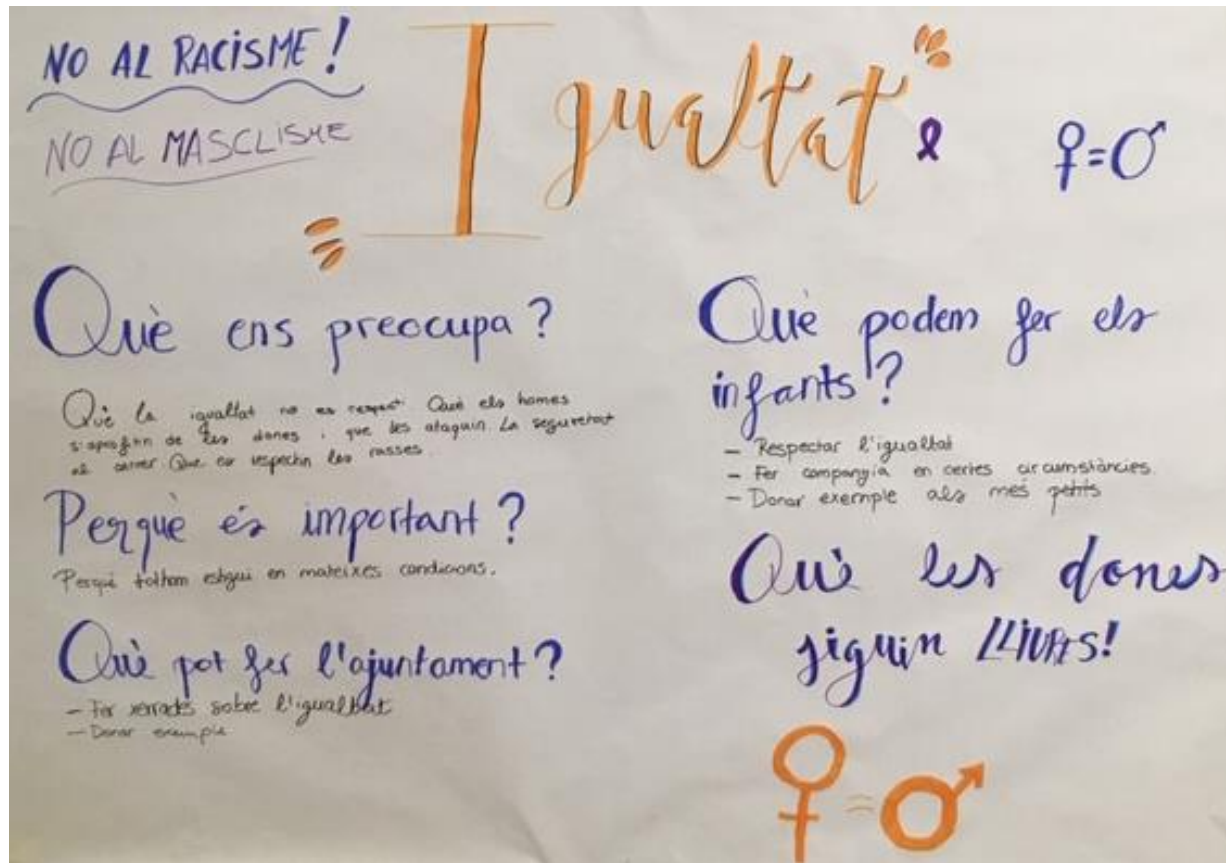 NO AL RACISME!
NO AL MASCLISME
Igualtat
♀=♂
Què ens preocupa?
Què la igualtat no es respecti Què els homes
s'aprofitin de les dones i que les ataquin. La seguretat
al carrer Que es respectin les rasses.
Perquè és important?
Perquè tothom estgui en mateixes condicions.
Què pot fer l'ajuntament?
- Fer xerrades sobre l'igualtat
- Donar exemple
Què podem fer els
infants?
- Respectar l'igualtat
- Fer companyia en certes circumstàncies.
- Donar exemple als més petits
Què les dones
siguin LLIURES!
♀=♂